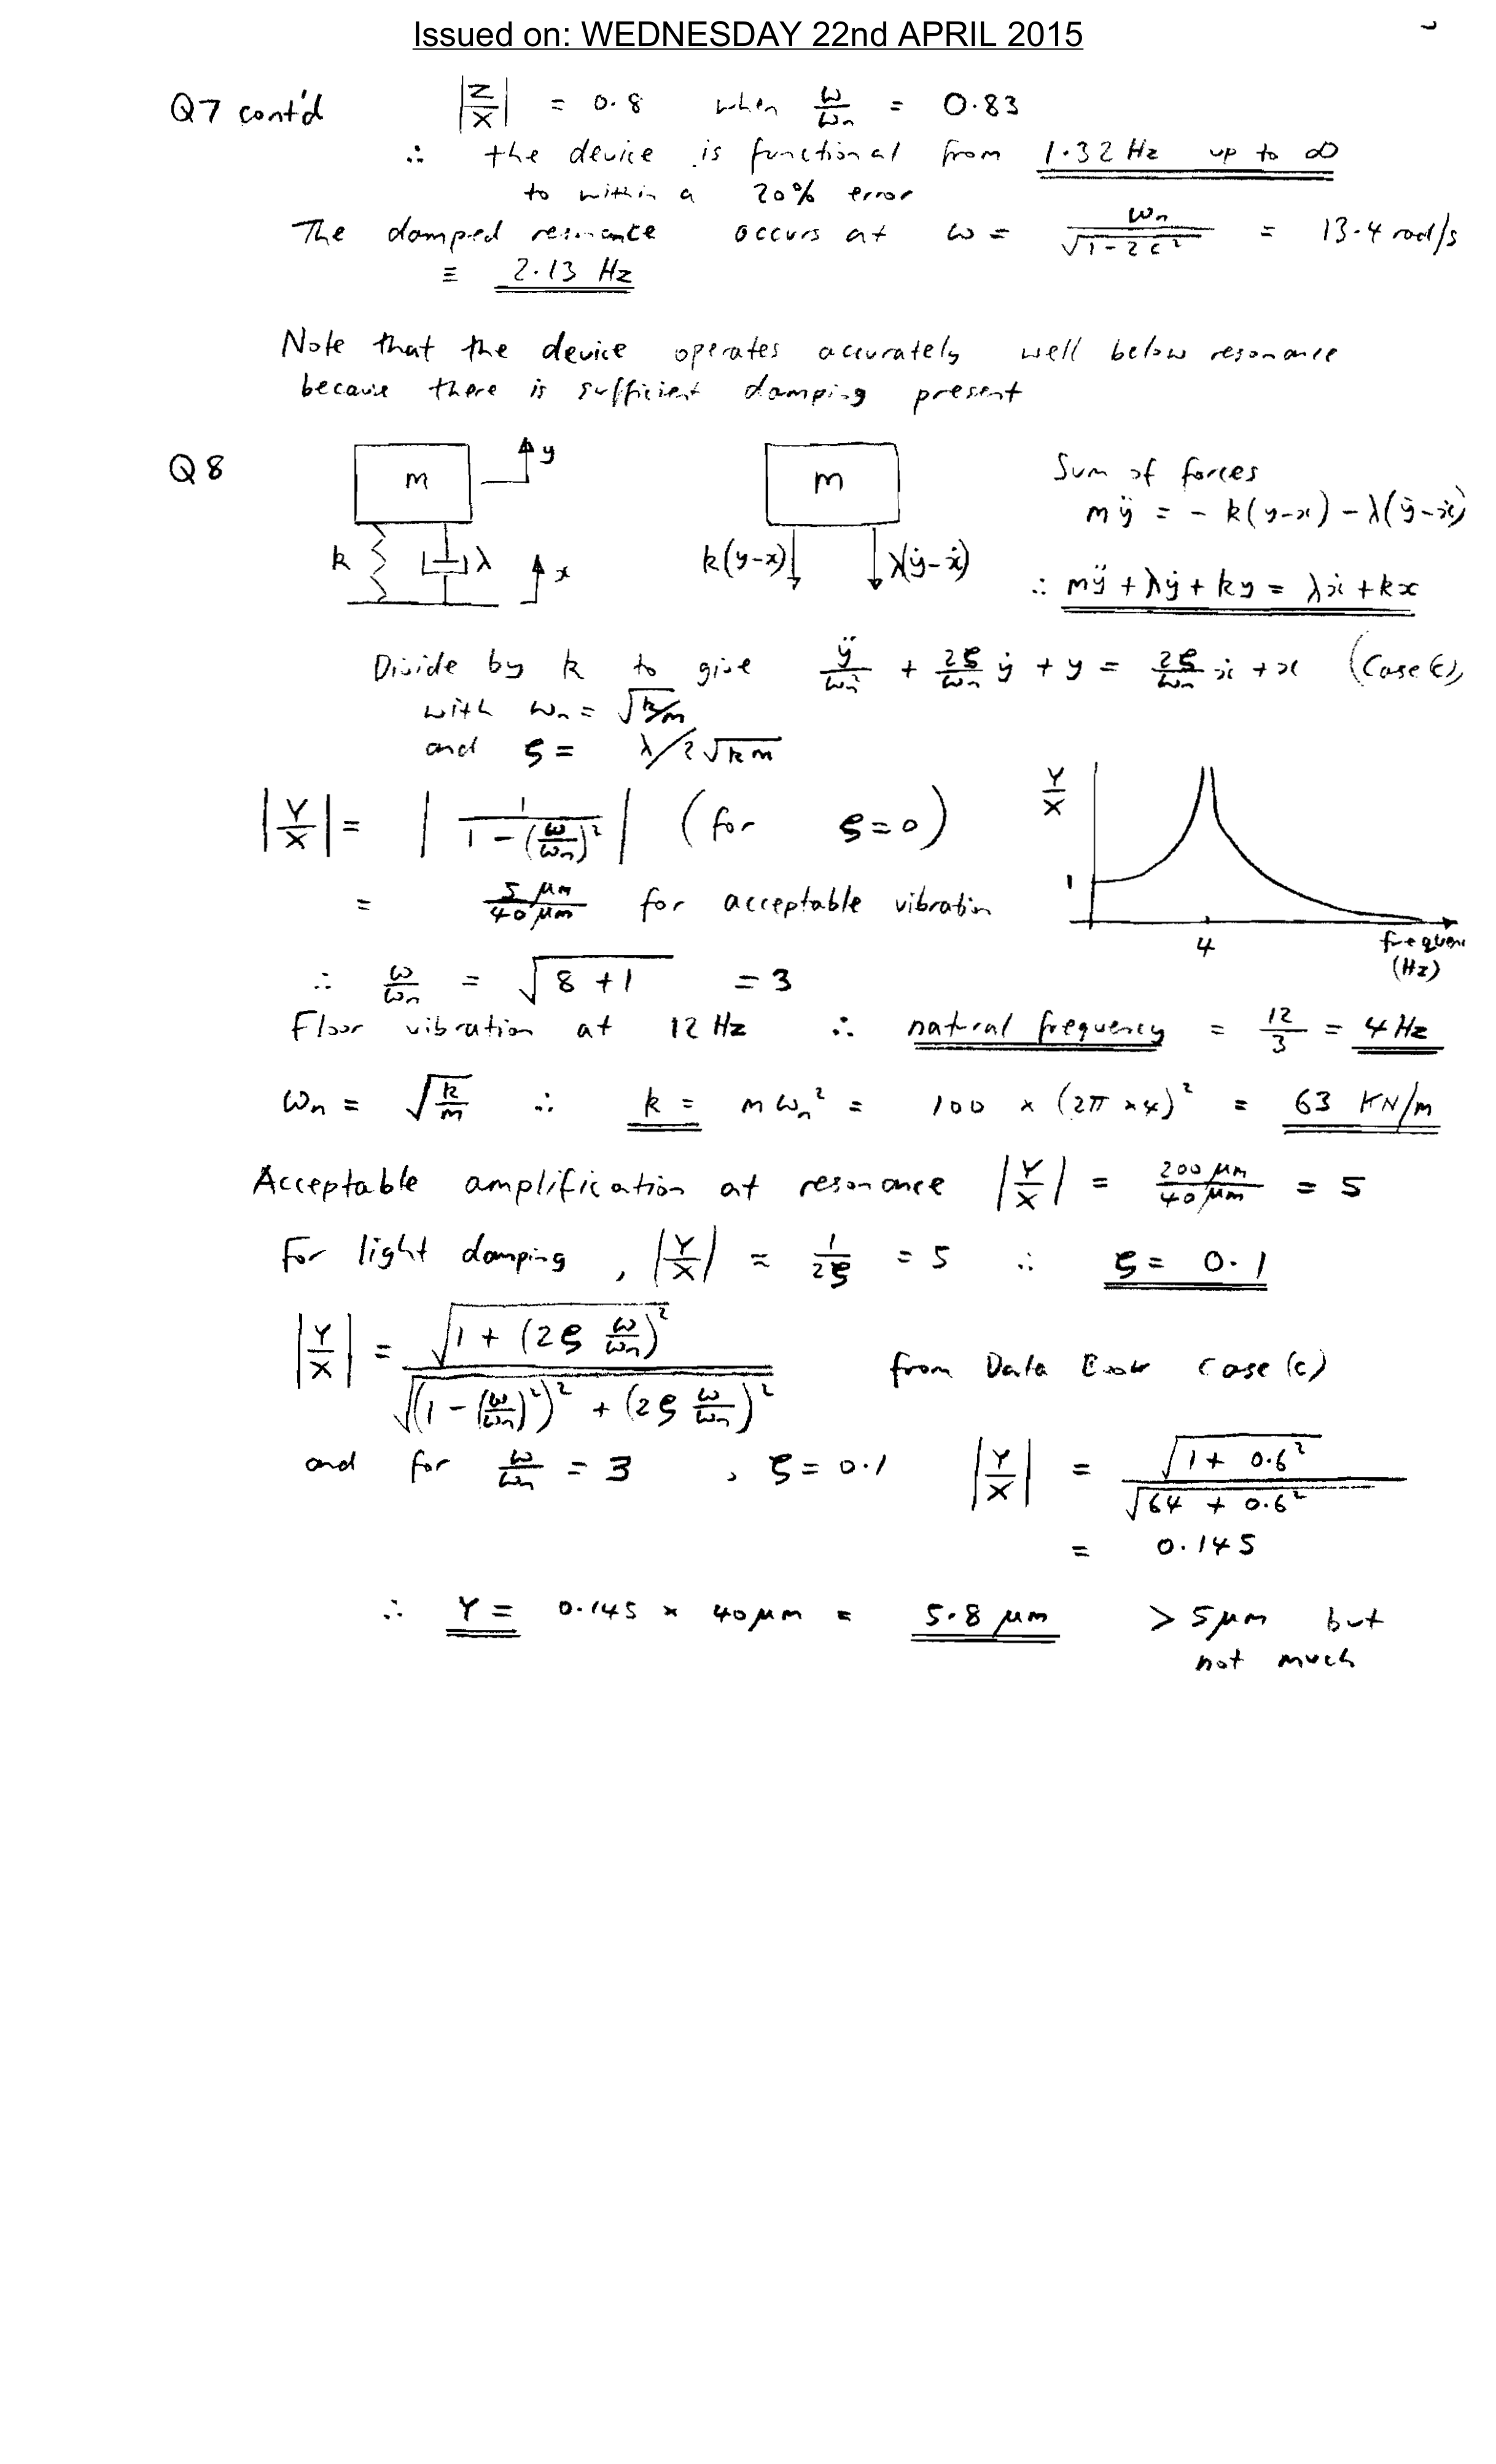 Issued on: WEDNESDAY 22nd APRIL 2015
Q7 cont'd |Z/X| = 0.8 when ω/ωn = 0.83
∴ the device is functional from 1.32 Hz up to ∞
to within a 20% error
The damped resonance occurs at ω = ωn/√(1-2ζ²) = 13.4 rad/s
≡ 2.13 Hz
Note that the device operates accurately well below resonance
because there is sufficient damping present
Q8
m y
k λ x
m
k(y-x) λ(ẏ-ẋ)
Sum of forces
mÿ = - k(y-x) - λ(ẏ-ẋ)
∴ mÿ + λẏ + ky = λẋ + kx
Divide by k to give ÿ/ωn² + 2ζ/ωn ẏ + y = 2ζ/ωn ẋ + x
with ωn = √k/m
and ζ = λ/2√km
|Y/X| = |1/(1-(ω/ωn)²)| (for ζ=0)
= 5 μm/40 μm for acceptable vibration
Y/X
1
4
(Hz)
∴ ω/ωn = √(8+1) = 3
Floor vibration at 12 Hz ∴ natural frequency = 12/3 = 4 Hz
ωn = √(k/m) ∴ k = mωn² = 100 × (2π×4)² = 63 KN/m
Acceptable amplification at resonance |Y/X| = 200 μm/40 μm = 5
For light damping, |Y/X| ≈ 1/2ζ = 5 ∴ ζ = 0.1
|Y/X| = √(1+(2ζ ω/ωn)²)/√((1-(ω/ωn)²)² + (2ζ ω/ωn)²) from Data Book case (c)
and for ω/ωn = 3, ζ=0.1 |Y/X| = √(1+0.6²)/√(64+0.6²)
= 0.145
∴ Y = 0.145 × 40μm = 5.8 μm > 5μm but
not much